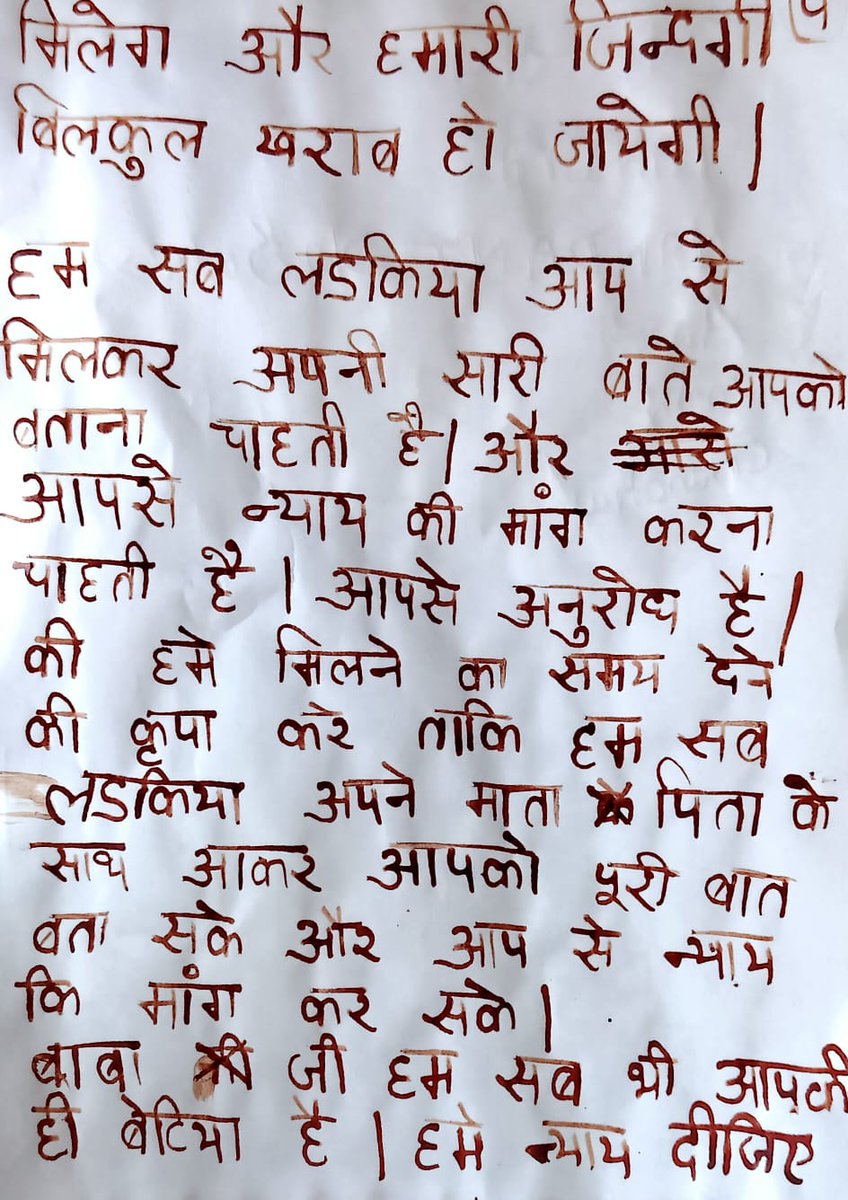 मिलेग और हमारी जिन्दगी
बिलकुल खराब हो जायेगी |
हम सब लडकिया आप से
मिलकर अपनी सारी बाते आपको
बताना चाहती है | और
आपसे न्याय की मांग करना
चाहती है | आपसे अनुरोध है |
की हमे मिलने का समय देने
की कृपा करे ताकि हम सब
लडकिया अपने माता पिता के
साथ आकर आपको पूरी बात
बता सके और आप से न्याय
कि मांग कर सके |
बाबा जी हम सब भी आपकी
ही बेटिया है | हमे न्याय दीजिए